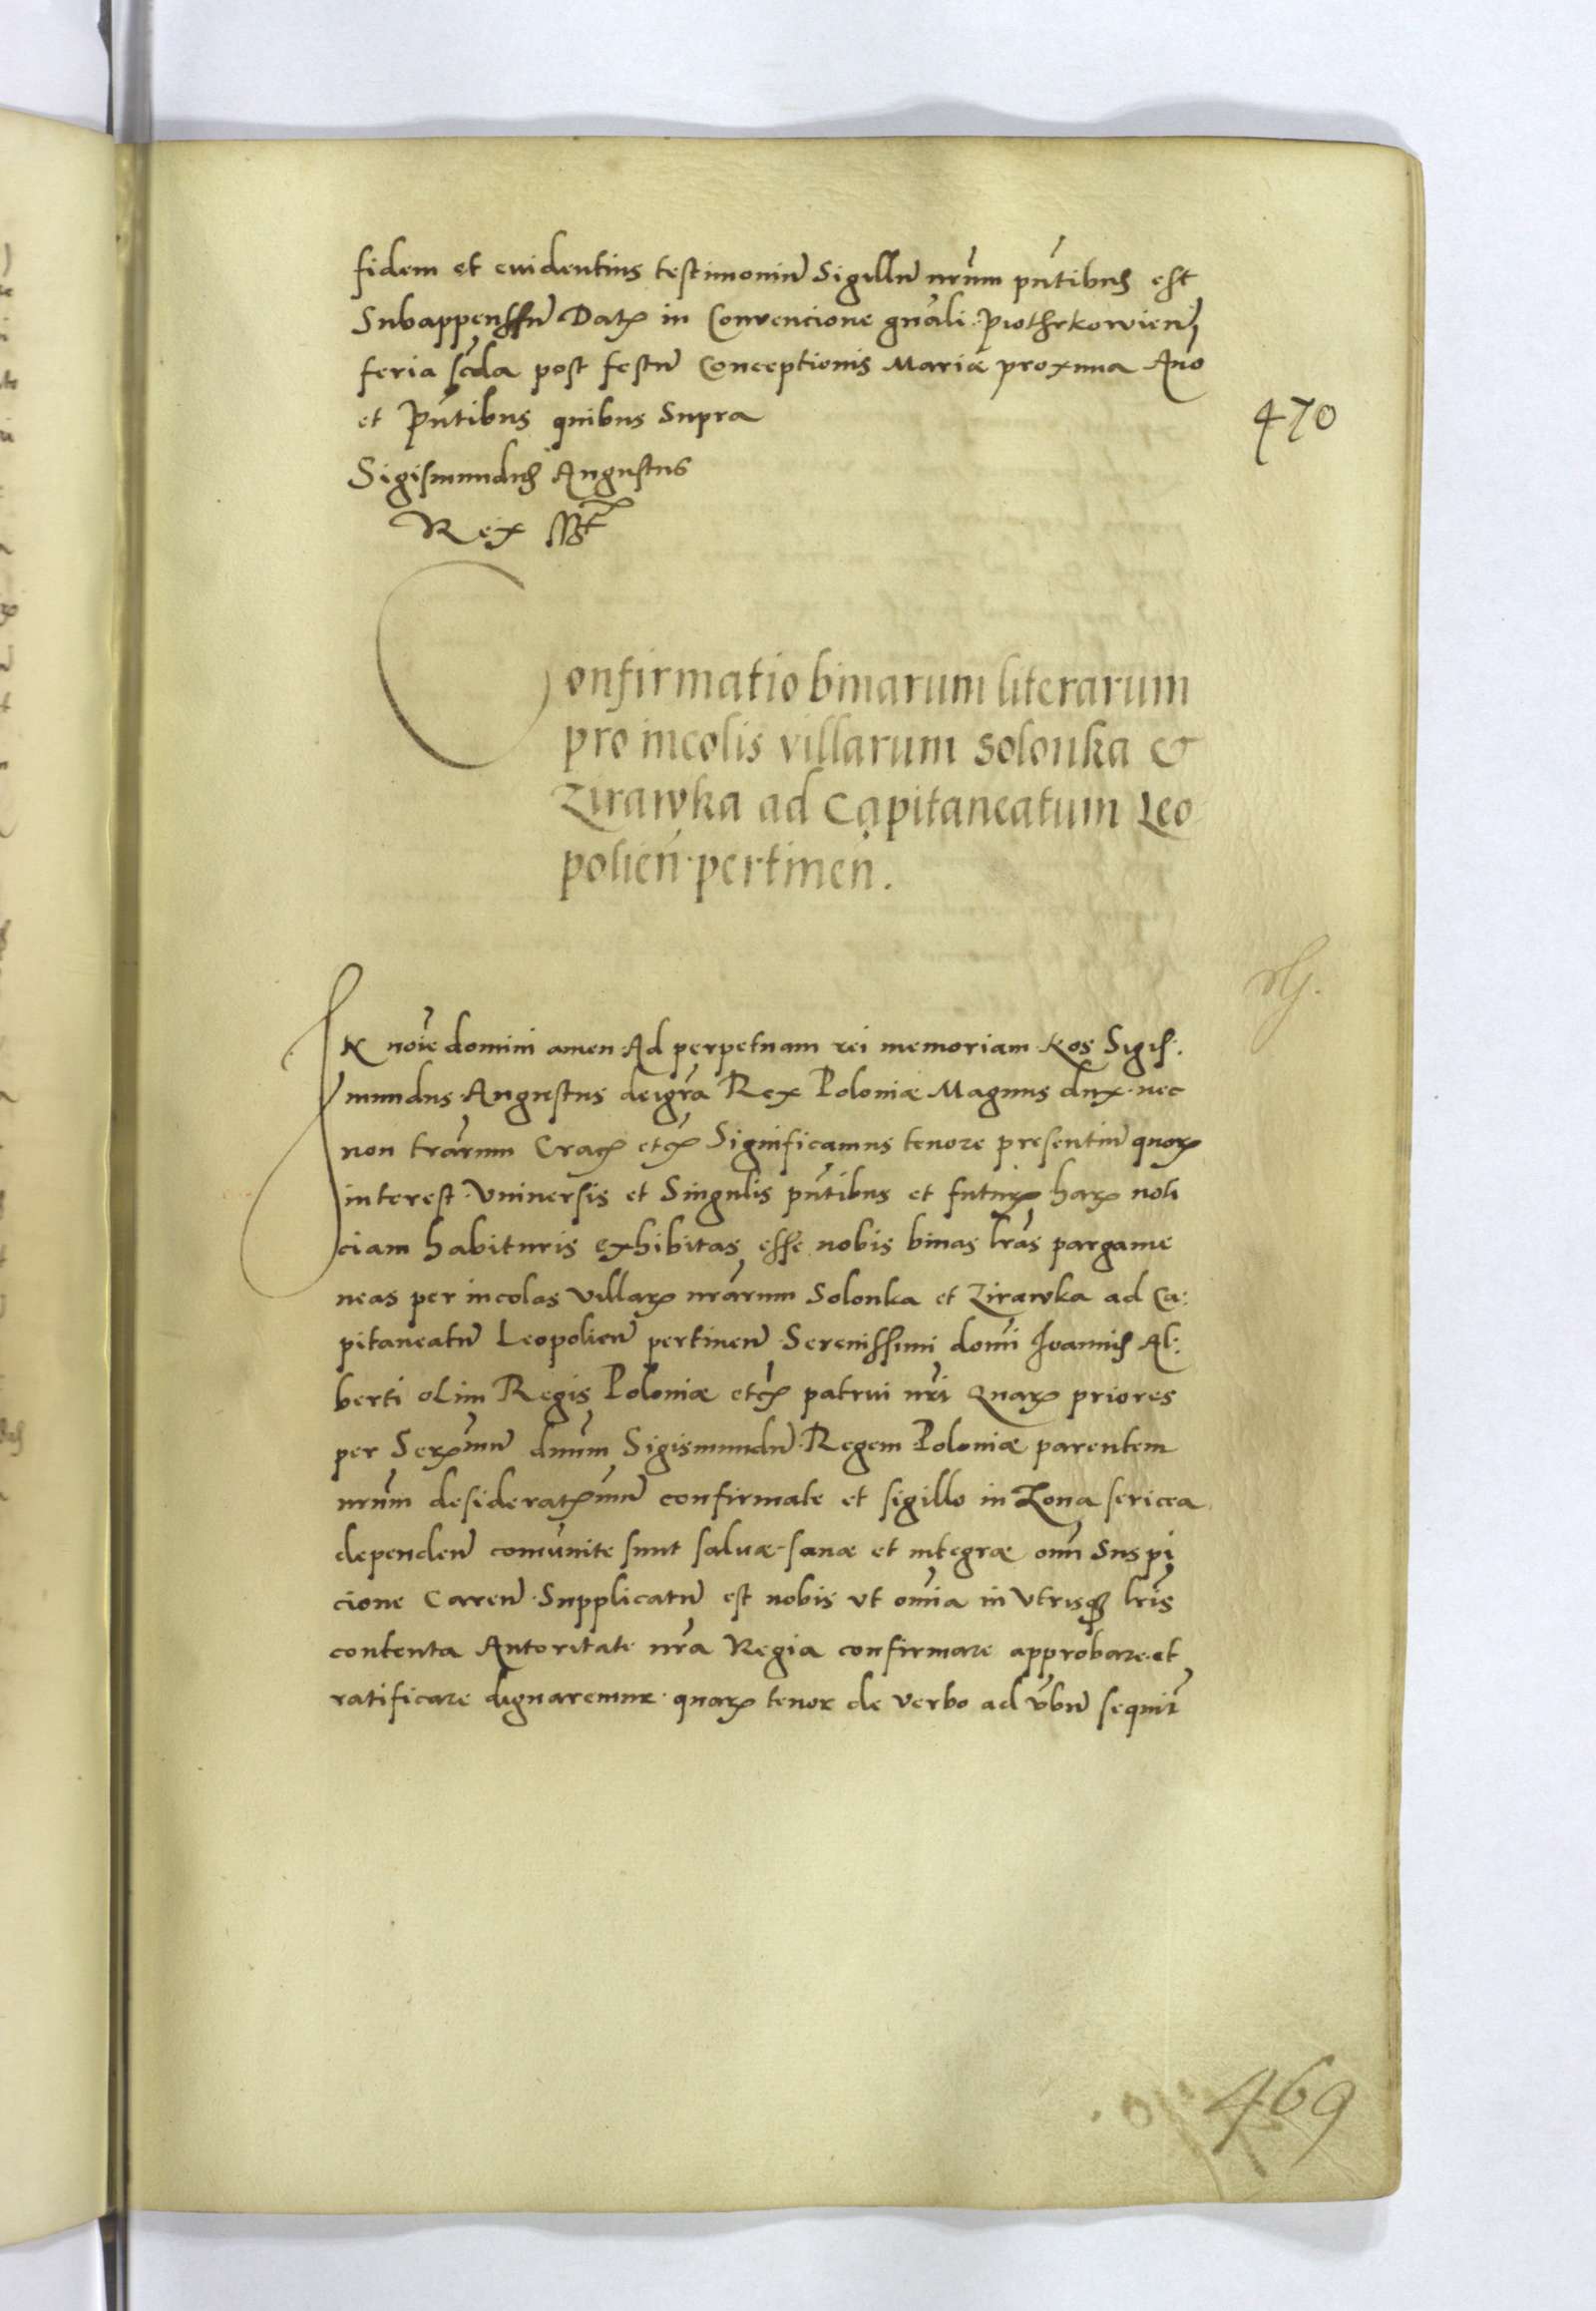 fidem et euidentius testimoniũ Sigillũ nr̃um pñtibus est
Subappenssũ Datꝝ in Convencione gñali Piothrkowieñ
feria scđa post festũ Conceptionis Mariæ proxima Año
et Pñtibus quibus Supra
470
Sigismundus Augustus
Rex sst
Confirmatio binarum literarum
pro incolis villarum Solonka &
Zirawka ad Capitaneatum Leo
polieñ pertineñ.
IN noĩe domini amen Ad perpetuam rei memoriam Nos Sigis:
mundus Augustus dei gr̃a Rex Poloniæ Magnus dux nec
non trãrum Cracꝝ etcꝝ Significamus tenore presentiũ quorꝝ
interest Vniuersis et Singulis pñtibus et futurꝝ harꝝ noti
ciam habituris exhibitas esse nobis binas lr̃as pargame
neas per incolas Villarꝝ nr̃arum Solonka et Zirawka ad Ca:
pitaneatũ Leopolieñ pertineñ Serenissimi domi Ioannis Al:
berti olim Regis Poloniæ etcꝝ patrui nr̃i Quarꝝ priores
per Serꝝmũ dnũm Sigismundũ Regem Poloniæ parentem
nr̃um desideratꝝmũ confirmate et sigillo in Zona sericea
dependeñ comũnite sunt saluæ sanæ et integræ omĩ Suspi
cione Careñ Supplicatũ est nobis vt omĩa in Vtrisqꝫ lr̃is
contenta Autoritate nr̃a Regia confirmare approbare et
ratificare dignaremur quarꝝ tenor de verbo ad ṽbũ sequit̃
469